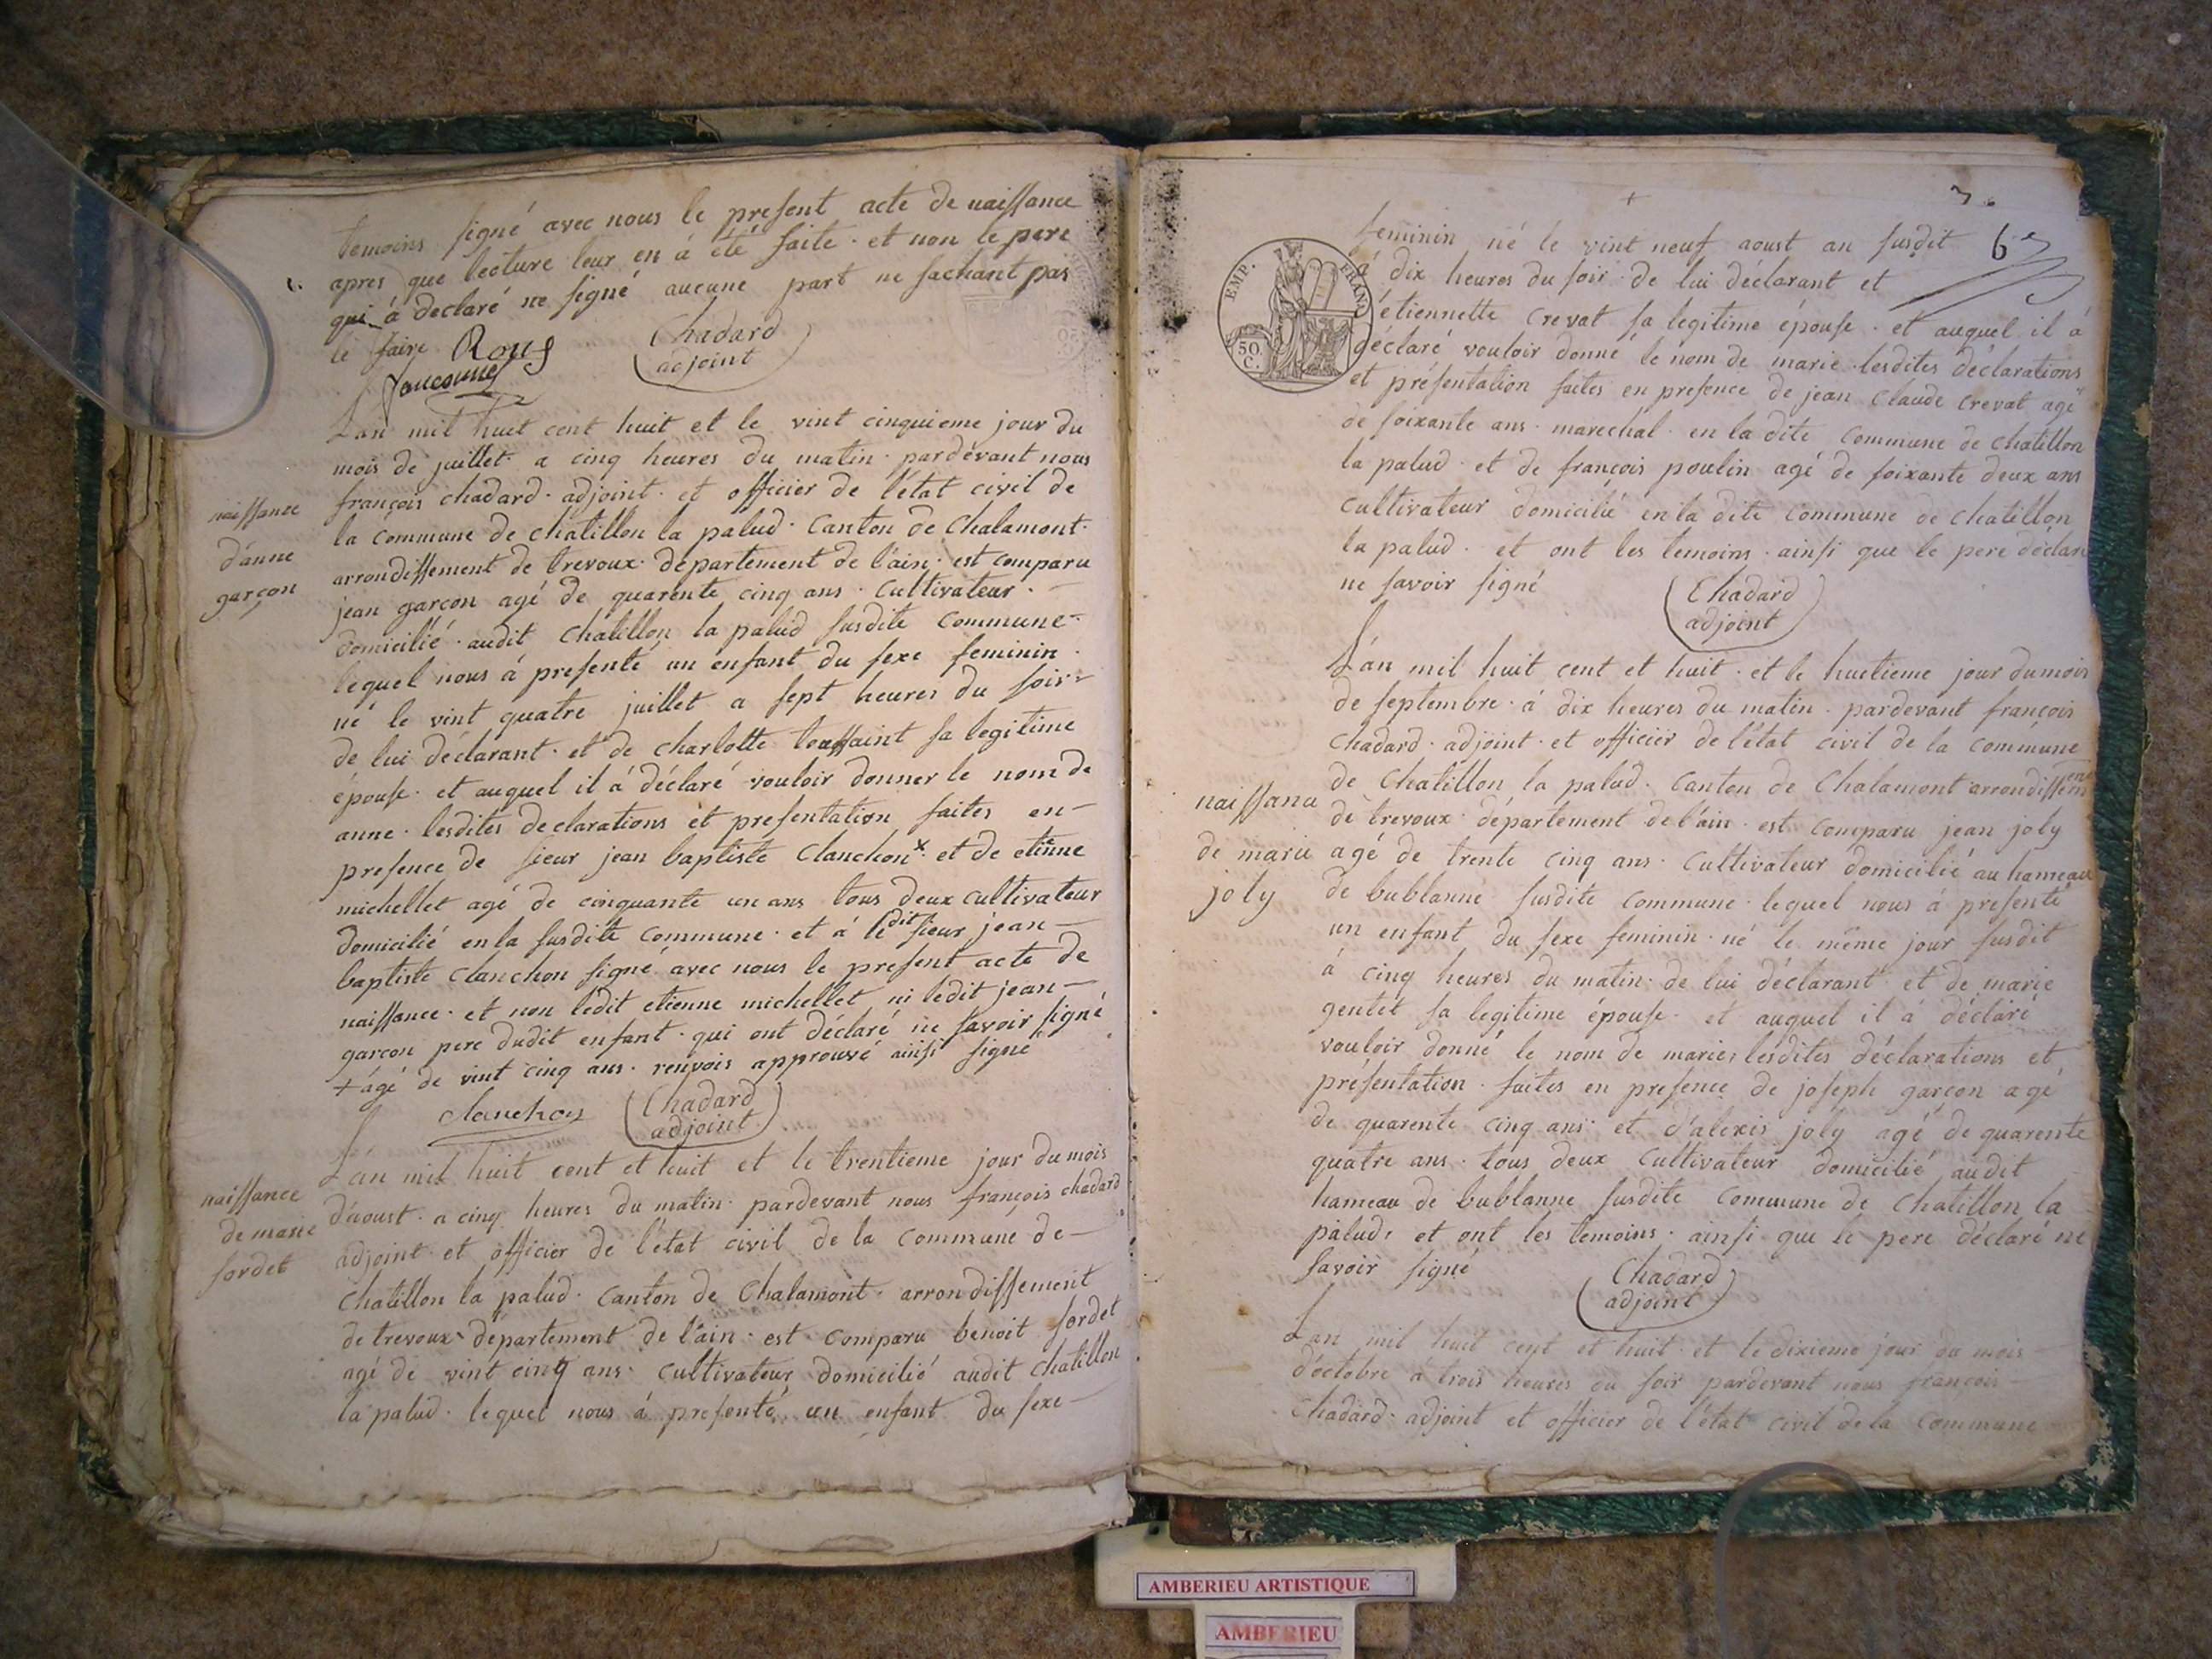 temoins signé avec nous le present acte de naissance
apres que lecture leur en à été faite . et non le pere
qui à declaré ne signé aucune part ne sachant pas
le faire Rous Chadard
adjoint
L'an mil huit cent huit et le vint cinquieme jour du
mois de juillet . a cinq heures du matin . pardevant nous
françois chadard . adjoint . et officier de l'état civil de
la commune de chatillon la palud . Canton de Chalamont .
arrondissement de trevoux . departement de l'ain . est comparu
jean garçon agé de quarente cinq ans . Cultivateur .
domicilié . audit chatillon la palud susdite commune
lequel nous à presenté un enfant du sexe feminin .
né le vint quatre juillet a sept heures du soir
de lui déclarant . et de charlotte toussaint sa legitime
épouse . et auquel il à déclaré vouloir donner le nom de
anne . lesdites declarations et presentation faites en
presence de sieur jean baptiste Clanchon x . et de etienne
michellet agé de cinquante un ans tous deux cultivateur
domicilié en la susdite commune . et à ledit sieur jean
baptiste clanchon signé avec nous le present acte de
naissance . et non ledit etienne michellet ni ledit jean
garcon pere dudit enfant . qui ont déclaré ne savoir signé
+ agé de vint cinq ans . renvois approuvé ainsi signé
clanchon Chadard
adjoint
naissance
d'anne
garçon
L'an mil huit cent et huit et le trentieme jour du mois
d'aoust . a cinq heures du matin . pardevant nous françois chadard
adjoint et officier de l'état civil de la commune de
Chatillon la palud . Canton de Chalamont . arrondissement
de trevoux . département de l'ain . est comparu benoit sordet
agé de vint cinq ans . cultivateur domicilié audit chatillon
la palud . lequel nous à presenté un enfant du sexe
naissance
de marie
sordet
7
6e
EMP. FRAN.
50.
C.
feminin né le vint neuf aoust an susdit
à dix heures du soir . de lui déclarant et
d'étiennette crevat sa legitime épouse . et auquel il à
déclaré vouloir donné le nom de marie . lesdites déclarations
et présentation faites en presence de jean Claude Crevat agé
de soixante ans . marechal . en la dite commune de chatillon
la palud . et de françois poulin agé de soixante deux ans
Cultivateur domicilié en la dite commune de chatillon
la palud . et ont les temoins . ainsi que le pere déclaré
ne savoir signé Chadard
adjoint
L'an mil huit cent et huit . et le huitieme jour du mois
de septembre . à dix heures du matin . pardevant françois
Chadard . adjoint . et officier de l'état civil de la commune
de Chatillon la palud . Canton de Chalamont arrondissement
de trevoux . département de l'ain . est comparu jean joly
agé de trente cinq ans . Cultivateur domicilié au hameau
de bublanne susdite commune . lequel nous à presenté
un enfant du sexe feminin . né le même jour susdit
à cinq heures du matin . de lui déclarant et de marie
gentet sa legitime épouse . et auquel il à déclaré
vouloir donné le nom de marie, lesdites déclarations et
présentation . faites en presence de joseph garçon agé
de quarente cinq ans . et d'alexis joly agé de quarente
quatre ans . tous deux Cultivateur domicilié audit
hameau de bublanne susdite commune de Chatillon la
palud, et ont les temoins . ainsi que le pere déclaré ne
savoir signé Chadard
adjoint
naissance
de marie
joly
L'an mil huit cent et huit . et le dixieme jour du mois
d'octobre à trois heures du soir pardevant nous françois
Chadard . adjoint et officier de l'état civil de la commune
AMBERIEU ARTISTIQUE
AMBERIEU